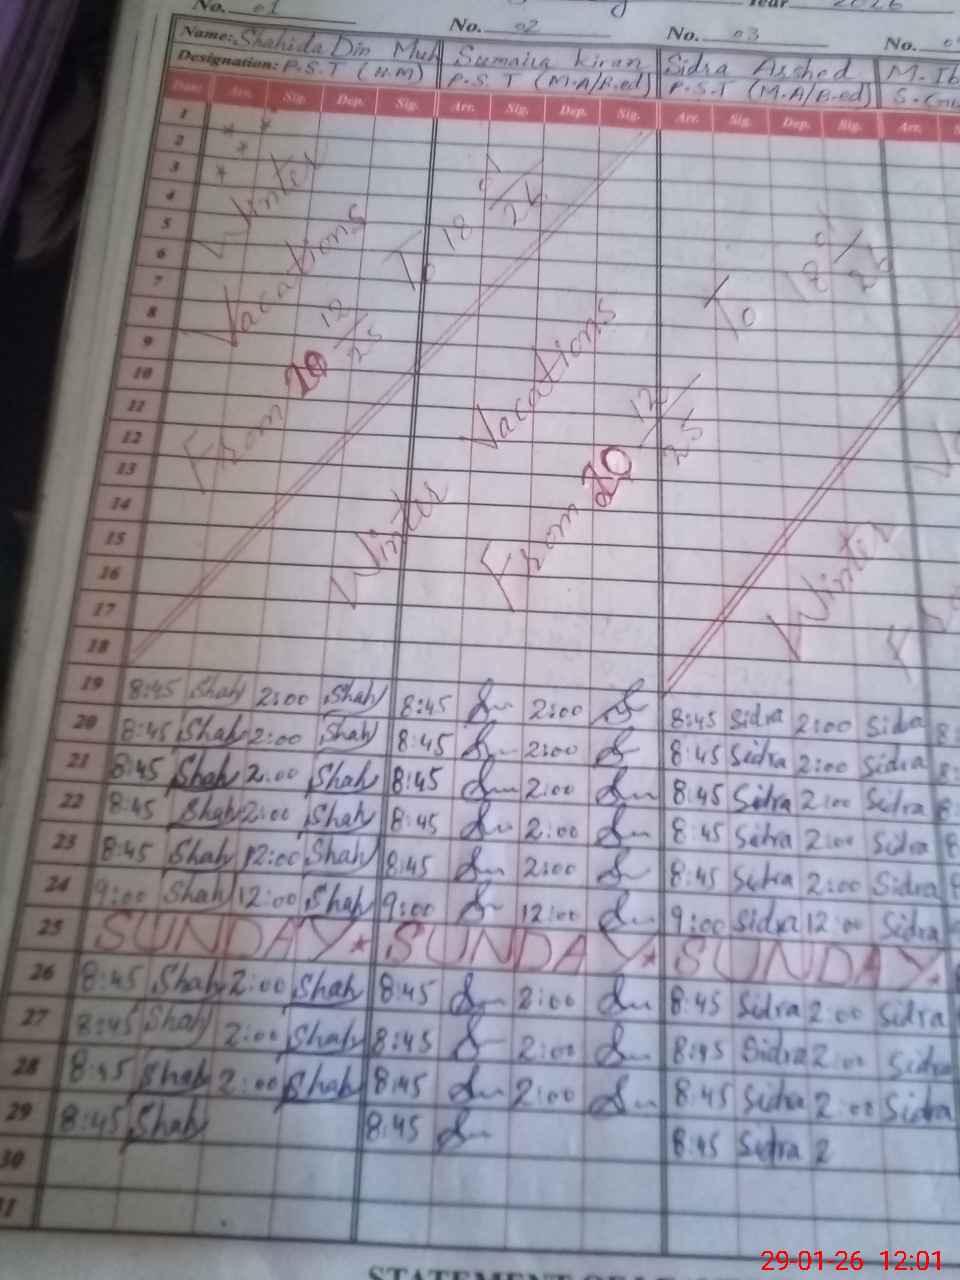 No. 01 No. 02 No. 03 No.
Year 2026
Name: Shahida Din Muh Sumaira Kiran Sidra Arshed M. Ib
Designation: P.S.T (H.M) P.S.T (M.A/B.ed) P.S.T (M.A/B.ed)
Date Arr. Sig. Dep. Sig. Arr. Sig. Dep. Sig. Arr. Sig. Dep. Sig. Arr.
1
2
3
4
5
6
7
8
9
10
11
12
13
14
15
16
17
18
Winter
Vacations
From 20 12/25 To 18 01/26
Winter Vacations
From 20 12/25 To 18 01/26
Winter
19 8:45 Shah 2:00 Shah 8:45 2:00 8:45 Sidra 2:00 Sidra
20 8:45 Shah 2:00 Shah 8:45 2:00 8:45 Sidra 2:00 Sidra
21 8:45 Shah 2:00 Shah 8:45 2:00 8:45 Sidra 2:00 Sidra
22 8:45 Shah 2:00 Shah 8:45 2:00 8:45 Sidra 2:00 Sidra
23 8:45 Shah 12:00 Shah 8:45 2:00 8:45 Sidra 2:00 Sidra
24 9:00 Shah 12:00 Shah 9:00 12:00 9:00 Sidra 12:00 Sidra
25 SUNDAY SUNDAY SUNDAY
26 8:45 Shah 2:00 Shah 8:45 2:00 8:45 Sidra 2:00 Sidra
27 8:45 Shah 2:00 Shah 8:45 2:00 8:45 Sidra 2:00 Sidra
28 8:45 Shah 2:00 Shah 8:45 2:00 8:45 Sidra 2:00 Sidra
29 8:45 Shah 8:45 8:45 Sidra 2
30
29-01-26 12:01